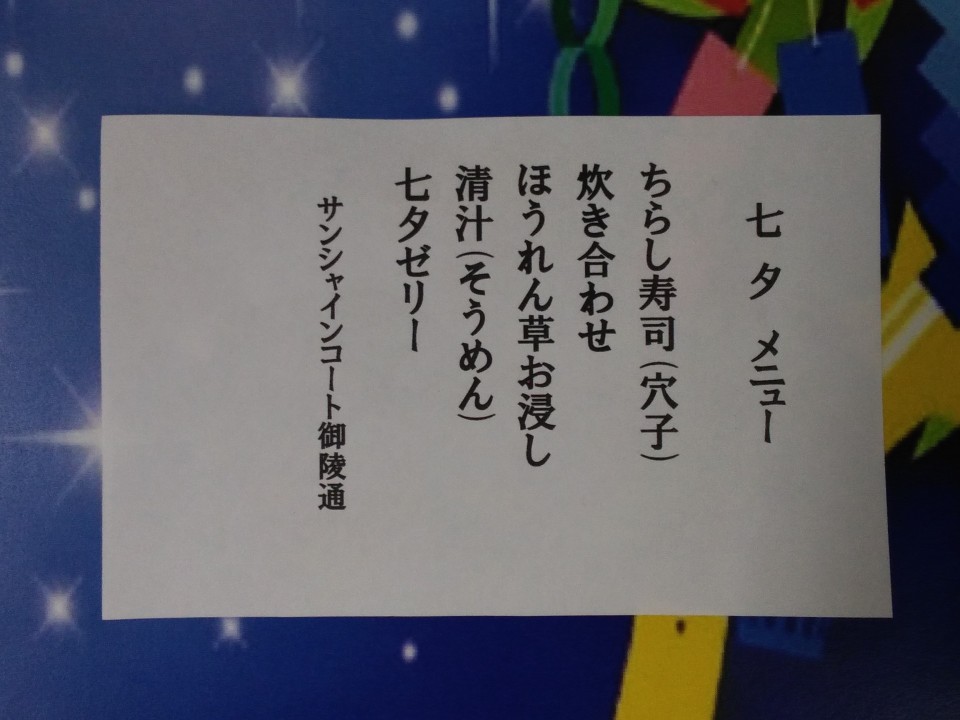 七夕 メニュー
ちらし寿司(穴子)
炊き合わせ
ほうれん草お浸し
清汁(そうめん)
七夕ゼリー
サンシャインコート御陵通